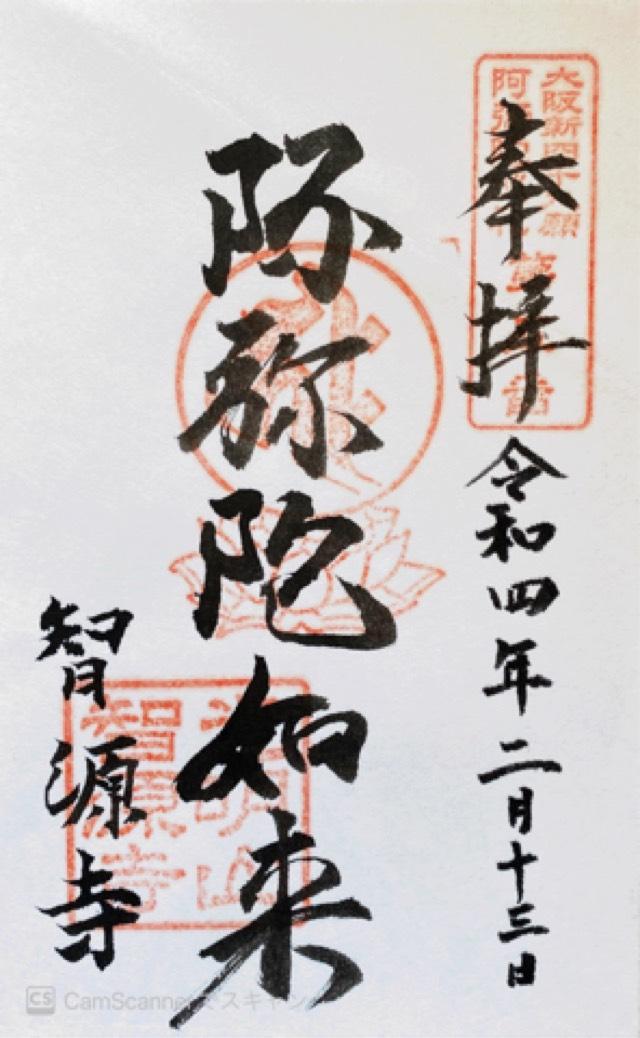 奉拝
令和四年二月十三日
阿弥陀如来
智源寺
大阪新四十八願
阿弥陀
智源寺
CS CamScannerでスキャン